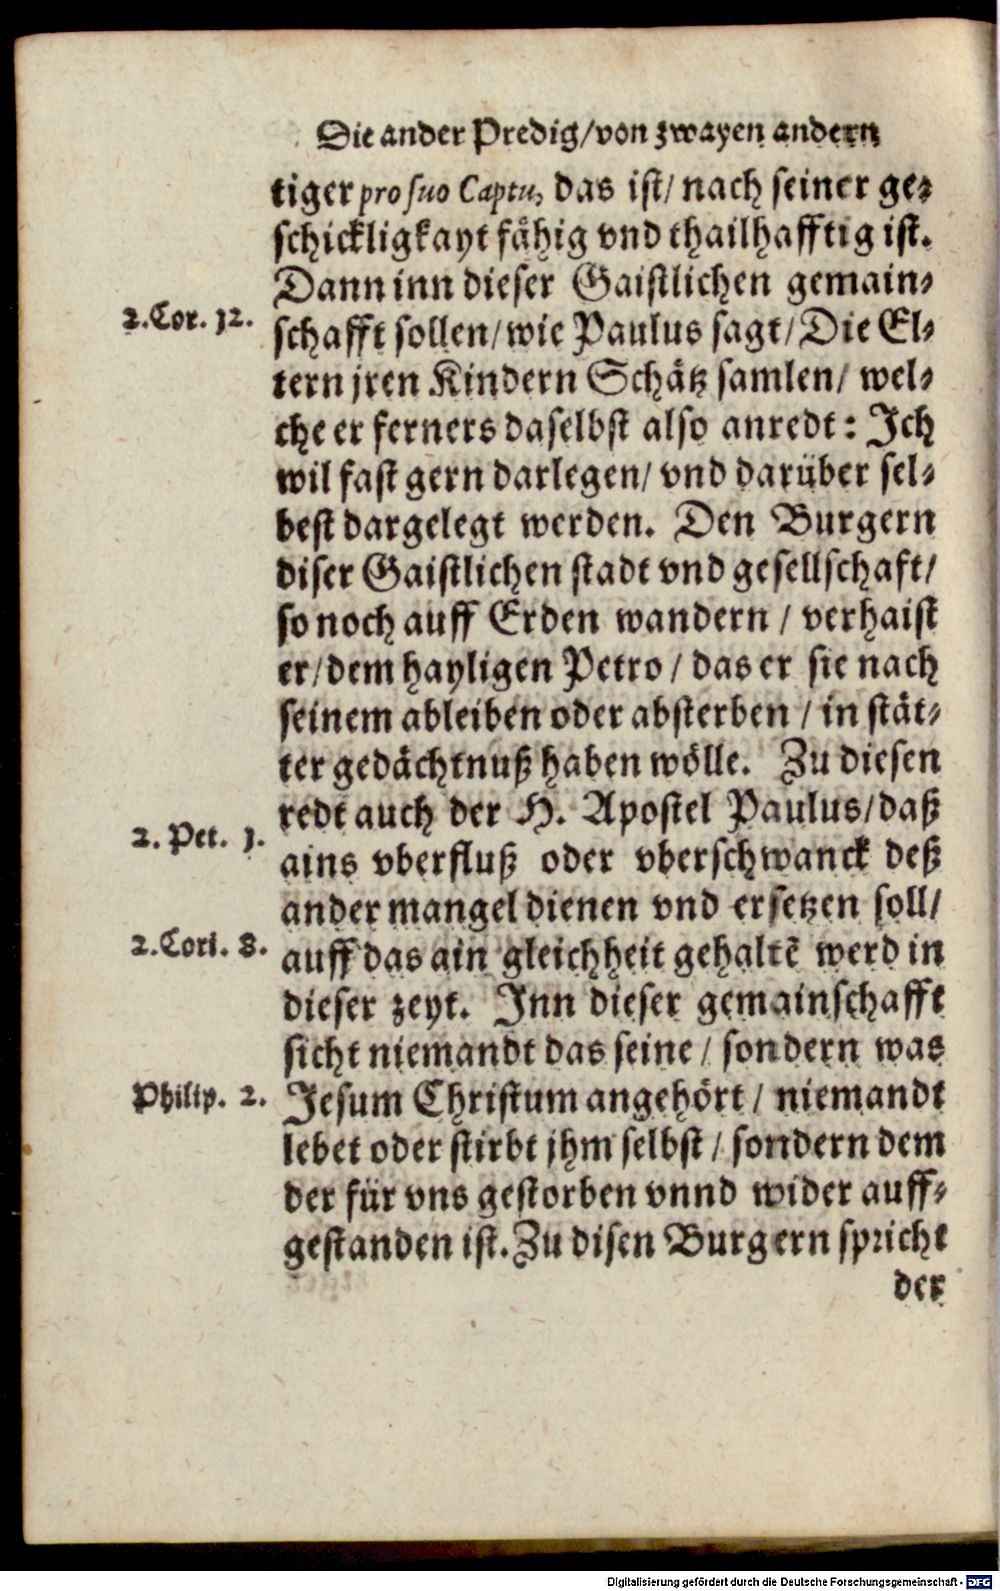 Die ander Predig/von zwayen andern
tiger pro suo Captu, das ist/ nach seiner ge⸗
schickligkayt fähig vnd thailhafftig ist.
Dann inn dieser Gaistlichen gemain⸗
2.Cor. 12.
schafft sollen/wie Paulus sagt/Die El⸗
tern jren Kindern Schätz samlen/ wel⸗
che er ferners daselbst also anredt: Ich
wil fast gern darlegen/ vnd darüber sel⸗
best dargelegt werden. Den Burgern
diser Gaistlichen stadt vnd gesellschaft/
so noch auff Erden wandern / verhaist
er/dem hayligen Petro / das er sie nach
seinem ableiben oder absterben / in stät⸗
ter gedächtnuß haben wölle. Zu diesen
redt auch der H. Apostel Paulus/daß
2. Pet. 1.
ains vberfluß oder vberschwanck deß
ander mangel dienen vnd ersetzen soll/
2.Cori. 8.
auff das ain gleichheit gehaltẽ werd in
dieser zeyt. Inn dieser gemainschafft
sicht niemandt das seine / sondern was
Philip. 2.
Jesum Christum angehört / niemandt
lebet oder stirbt jhm selbst / sondern dem
der für vns gestorben vnnd wider auff⸗
gestanden ist. Zu disen Burgern spricht
der
Digitalisierung gefördert durch die Deutsche Forschungsgemeinschaft - DFG